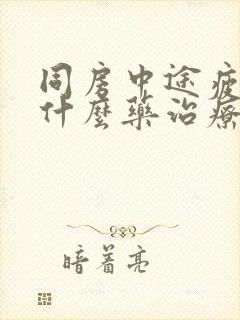 同房中途疲
什麼藥治療
暗着亮